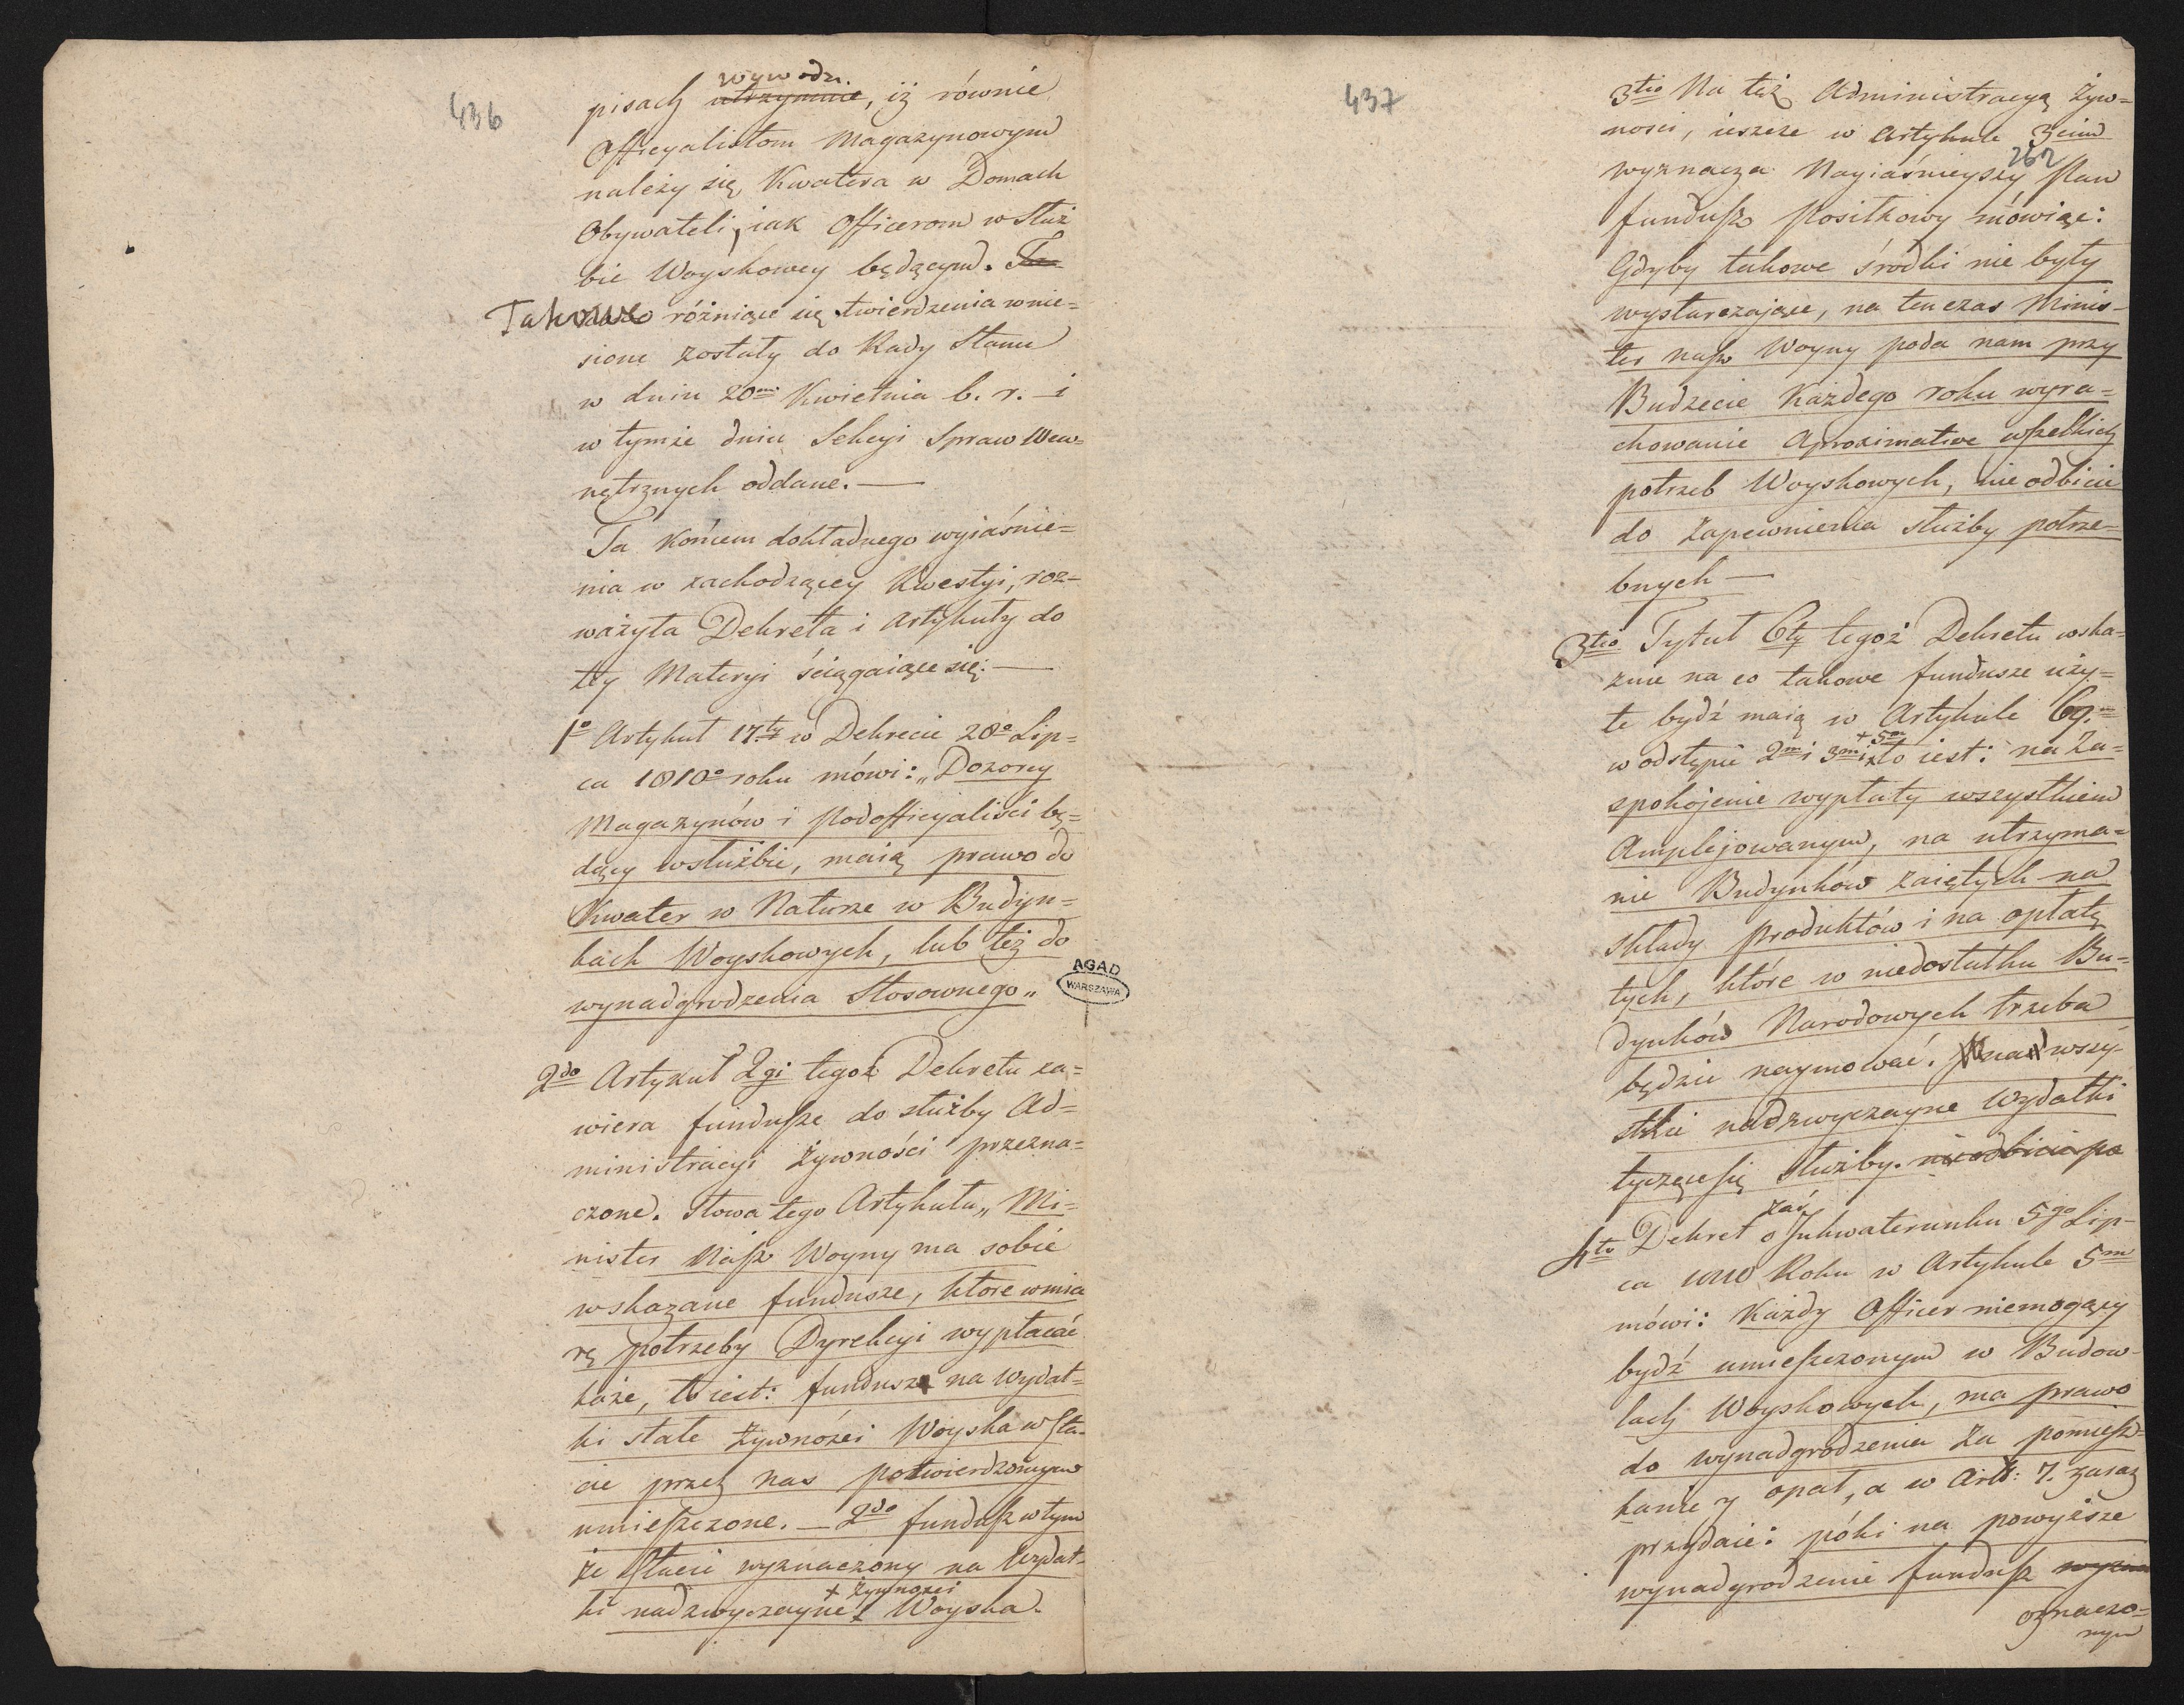 436
wywodzi
pisach utrzymuie, iż równie
Officyalistom Magazynowym
należy się Kwatera w Domach
Obywateli, iak Officerom w Służ
bie Woyskowey będącym. Ta
Takowe różniące się twierdzenia wnie=
sione zostały do Rady Stanu
w dniu 20m Kwietnia b. r. i
w tymże dniu Sekcyi Spraw Wew=
nętrznych oddane.—
Ta końcem dokładnego wyiaśnie=
nia w zachodzącey Kwestyi, roz=
ważyła Dekreta i Artykuły do
tey Materyi ściągaiące się:—
1o Artykuł 17ty w Dekrecie 20o Lip=
ca 1810o roku mówi: „Dozorcy
Magazynów i Podofficyaliści bę=
dący w służbie, maią prawo do
Kwater w Naturze w Budyn=
kach Woyskowych, lub też do
wynadgrodzenia Stosownego„
AGAD
WARSZAWA
2do Artykuł 2gi tegoż Dekretu za=
wiera fundusze do służby Ad=
ministracyi Żywności przezna=
czone. Słowa tego Artykułu „Mi=
nister Nasz Woyny ma sobie
wskazane fundusze, które w mia
rę potrzeby Dyrekcyi wypłacać
każe, to iest: fundusz na wydat=
ki stałe żywności Woyska w Sta=
cie przez nas potwierdzonym
umieszczone. — 2do fundusz w tym
że Stacie wyznaczony na Wydat=
+ żywności
ki nadzwyczayne + Woyska.
437
3tio Na też Administracyą Żyw=
ności, ieszcze w Artykule 3cim
262
wyznacza Nayiaśnieyszy Pan
fundusz Posiłkowy mówiąc:
Gdyby takowe środki nie były
wystarczaiące, na ten czas Minis=
ter nasz Woyny poda nam przy
Budżecie Każdego roku wyra=
chowanie Aproximative wszelkich
potrzeb Woyskowych, nieodbicie
do Zapewnienia służby potrze=
bnych —
3tio Tytuł 6ty tegoż Dekretu wska=
zuie na co takowe fundusze uży=
te bydź maią w Artykule 69.m
+ 5m
w odstępie 2m i 3m i to iest: na Za=
spokojenie wypłaty wszystkiem
Amplejowanym, na utrzyma=
nie Budynkow zaiętych na
składy produktów i na opłatę
tych, które w niedostatku Bu=
dynków Narodowych trzeba
będzie naymować. na wszy=
stkie nadzwyczayne Wydatki
tyczące się Służby. nieodbicie po
zaś
4to Dekret o Inkwaterunku 5go Lip=
ca 1810 Roku w Artykule 5m
mówi: Każdy Officer niemogący
bydź umieszczonym w Budow=
lach Woyskowych, ma prawo
do wynadgrodzenia Za pomiesz=
kanie y opał, a w Artt: 7. zaraz
przydaie: póki na powyższe
wynadgrodzenie fundusz wyzna
oznaczo=
nym